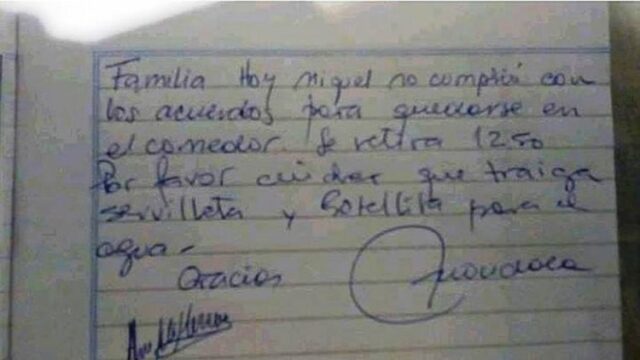 Familia Hoy Miguel no cumplió con
los acuerdos para quedarse en
el comedor. Se retira 12.50
Por favor cuidar que traiga
servilleta y Botellita para el
agua-
Gracias